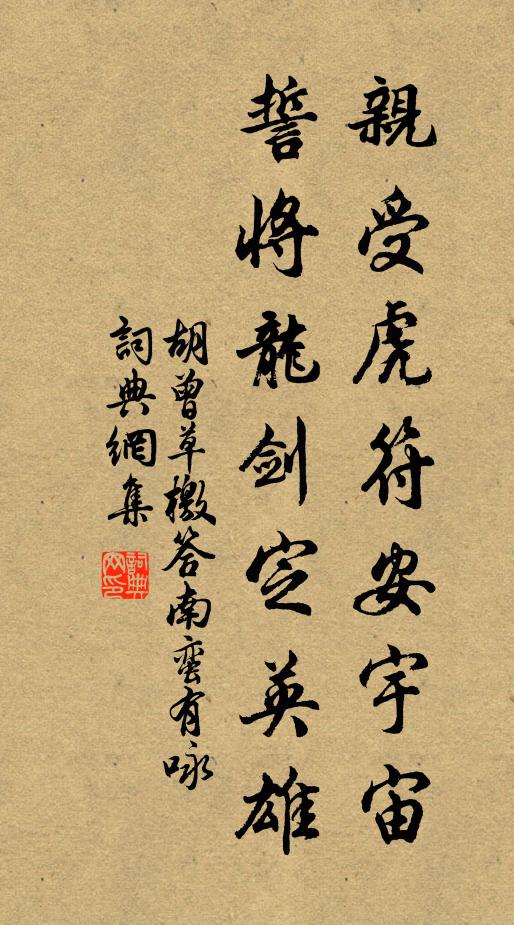 親受虎符安宇宙
誓將龍劍定英雄
胡曾草檄答南蠻有咏
詞典網集
詞典網印